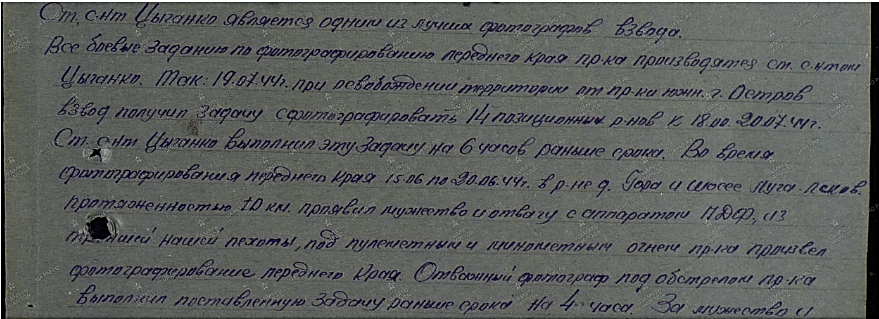 Ст. с-нт Цыганко является одним из лучших фотографов взвода.
Все боевые задание по фотографированию переднего края пр-ка производятся ст. с-нтом
Цыганко. Так: 19.07.44г. при освобождении территории от пр-ка южн. г. Остров
взвод получил задачу сфотографировать 14 позиционных р-нов к 18.00. 20.07.44г.
Ст. с-нт Цыганко выполнил эту задачу на 6 часов раньше срока. Во время
фотографирования переднего края 15.06 по 20.06.44г. в р-не д. Гора и шоссе Луга-Псков.
протяженностью 10 км. проявил мужество и отвагу с аппаратом ПДФ, из
траншей нашей пехоты, под пулеметным и минометным огнем пр-ка произвел
фотографирование переднего края. Отважный фотограф под обстрелом пр-ка
выполнил поставленную задачу раньше срока на 4 часа. За мужество и